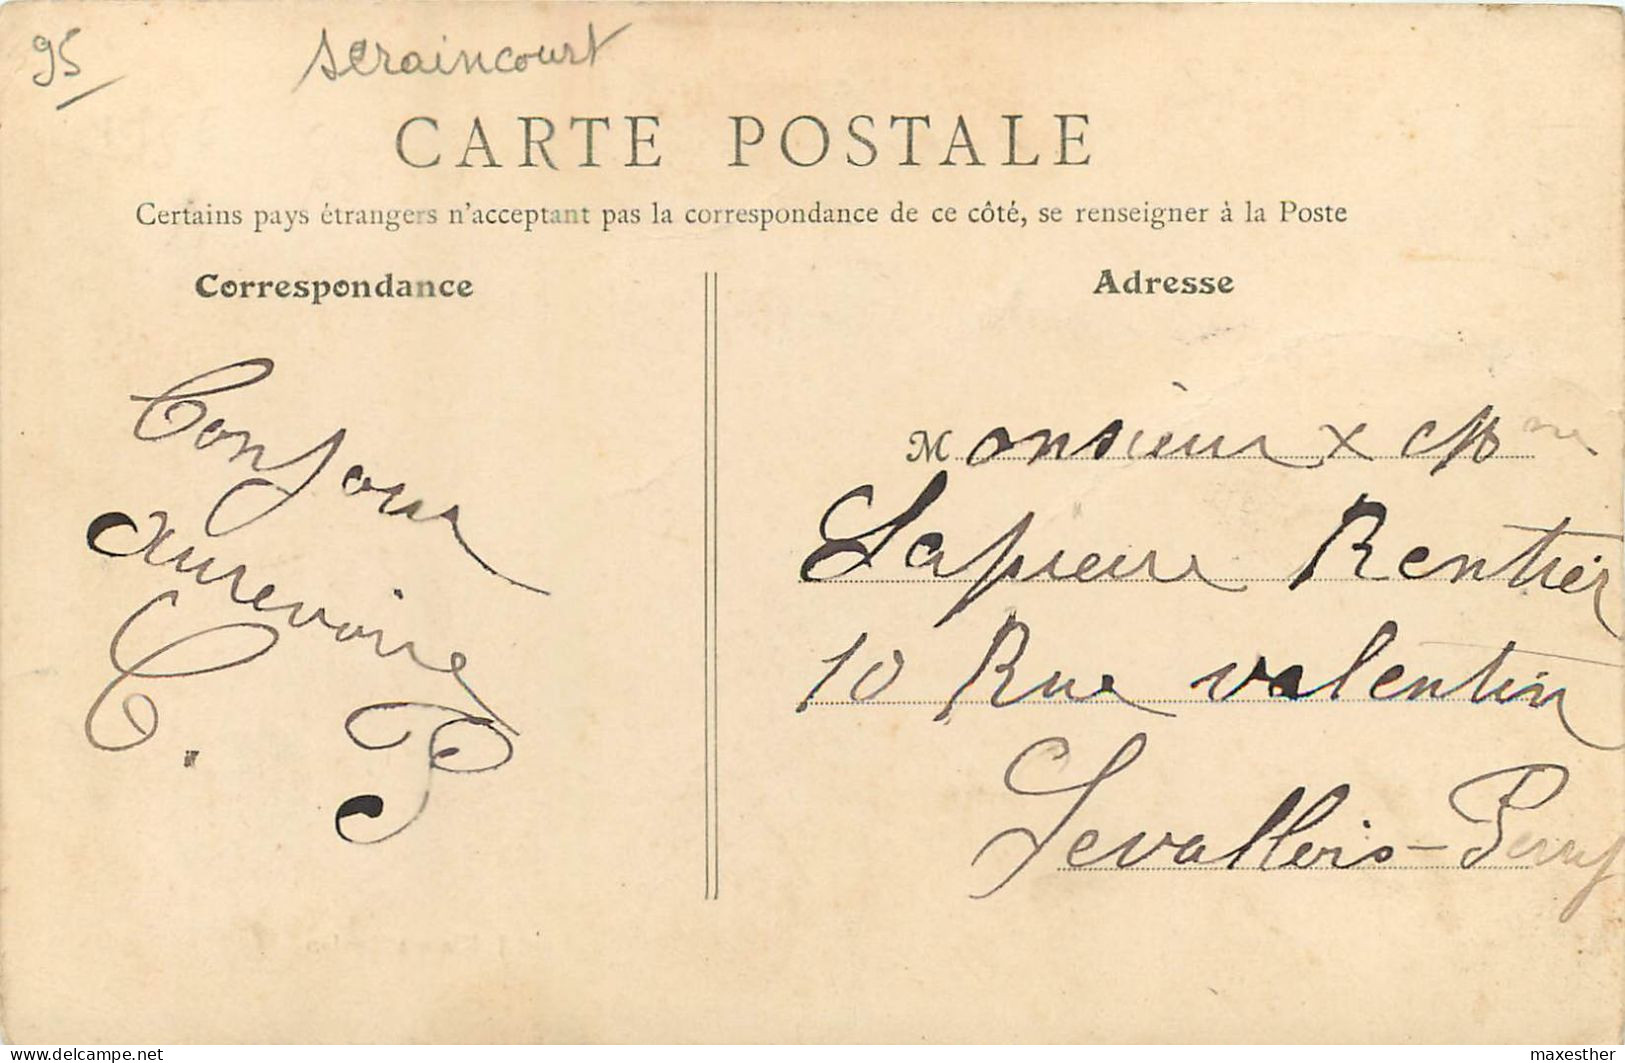 95
Seraincourt
CARTE POSTALE
Certains pays étrangers n'acceptant pas la correspondance de ce côté, se renseigner à la Poste
Correspondance
Bonjour
aurevoire
C. P
Adresse
Monsieur x Mme
Lapierre Rentier
10 Rue valentin
Levallois-Perret
https://www.delcampe.net
maxesther